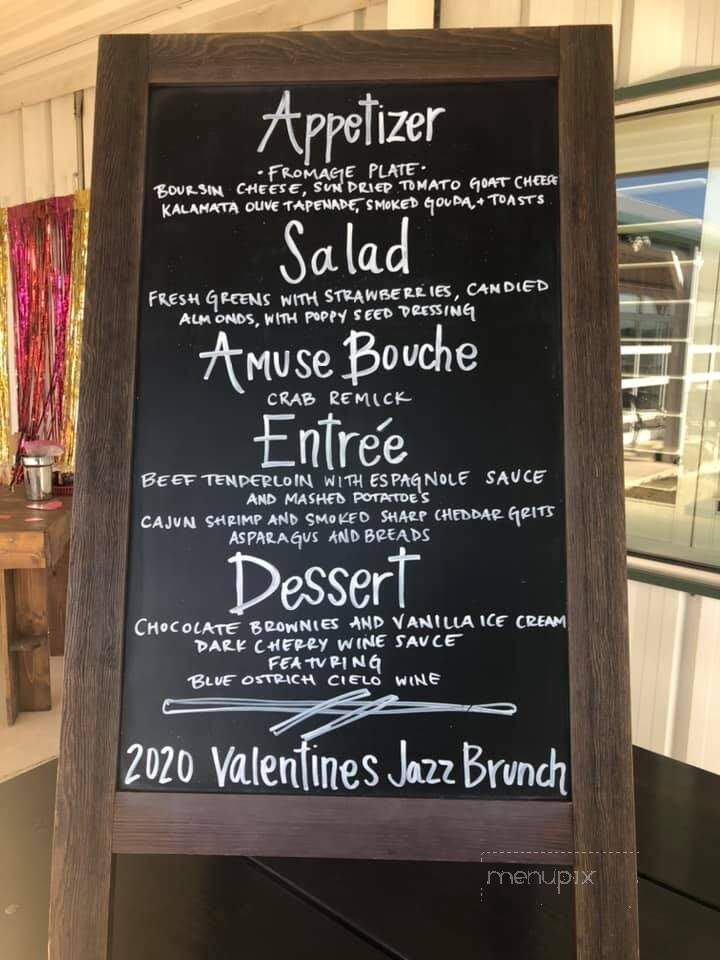 Appetizer
• FROMAGE PLATE •
BOURSIN CHEESE, SUN DRIED TOMATO GOAT CHEESE
KALAMATA OLIVE TAPENADE, SMOKED GOUDA, + TOASTS
Salad
FRESH GREENS WITH STRAWBERRIES, CANDIED
ALMONDS, WITH POPPY SEED DRESSING
AMUSE BOUCHE
CRAB REMICK
Entrée
BEEF TENDERLOIN WITH ESPAGNOLE SAUCE
AND MASHED POTATOE'S
CAJUN SHRIMP AND SMOKED SHARP CHEDDAR GRITS
ASPARAGUS AND BREADS
Dessert
CHOCOLATE BROWNIES AND VANILLA ICE CREAM
DARK CHERRY WINE SAUCE
FEATURING
BLUE OSTRICH CIELO WINE
2020 Valentines Jazz Brunch
menupix